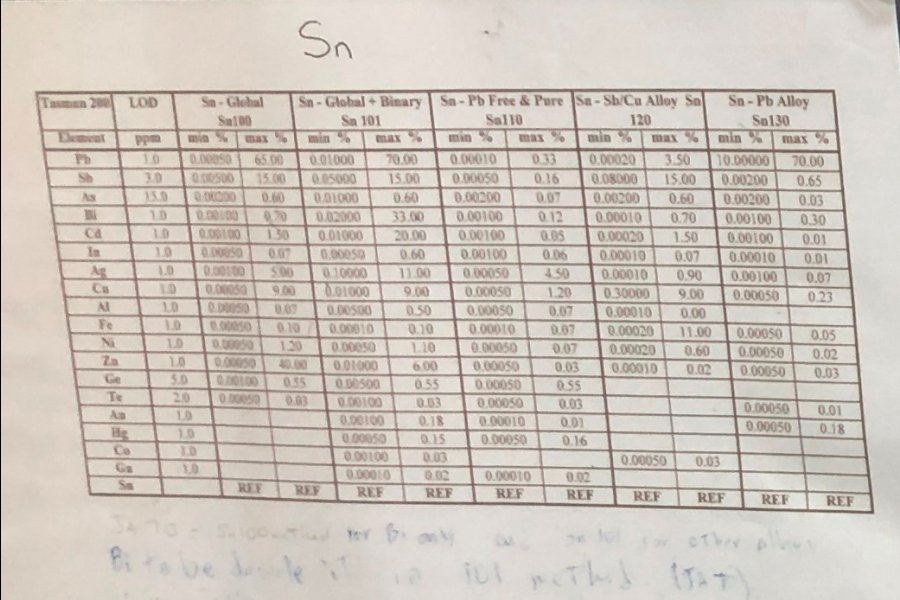 Sn
Tasman 200 LOD Sn - Global Sn - Global + Binary Sn - Pb Free & Pure Sn - Sb/Cu Alloy Sn Sn - Pb Alloy
Sn100 Sn 101 Sn110 120 Sn130
Element ppm min % max % min % max % min % max % min % max % min % max %
Pb 1.0 0.00050 65.00 0.01000 70.00 0.00010 0.33 0.00020 3.50 10.00000 70.00
Sb 3.0 0.00500 15.00 0.05000 15.00 0.00050 0.16 0.08000 15.00 0.00200 0.65
As 15.0 0.00200 0.60 0.01000 0.60 0.00200 0.07 0.00200 0.60 0.00200 0.03
Bi 1.0 0.00100 0.70 0.02000 33.00 0.00100 0.12 0.00010 0.70 0.00100 0.30
Cd 1.0 0.00100 1.50 0.01000 20.00 0.00100 0.05 0.00020 1.50 0.00100 0.01
In 1.0 0.00050 0.07 0.00050 0.60 0.00100 0.06 0.00010 0.07 0.00010 0.01
Ag 1.0 0.00100 5.00 0.10000 11.00 0.00050 4.50 0.00010 0.90 0.00100 0.07
Cu 1.0 0.00050 9.00 0.01000 9.00 0.00050 1.20 0.30000 9.00 0.00050 0.23
Al 1.0 0.00050 0.07 0.00500 0.50 0.00050 0.07 0.00010 0.00
Fe 1.0 0.00050 0.10 0.00010 0.10 0.00010 0.07 0.00020 11.00 0.00050 0.05
Ni 1.0 0.00050 1.20 0.00050 1.10 0.00050 0.07 0.00020 0.60 0.00050 0.02
Zn 1.0 0.00050 40.00 0.01000 6.00 0.00050 0.03 0.00010 0.02 0.00050 0.03
Ge 5.0 0.00100 0.55 0.00500 0.55 0.00050 0.55
Te 2.0 0.00050 0.03 0.00100 0.03 0.00050 0.03 0.00050 0.01
Au 1.0 0.00100 0.18 0.00010 0.01 0.00050 0.18
Hg 1.0 0.00050 0.15 0.00050 0.16
Co 1.0 0.00100 0.03 0.00050 0.03
Ga 1.0 0.00010 0.02 0.00010 0.02
Sn REF REF REF REF REF REF REF REF REF REF
for Bi only for other alloys
Bi to be in 101 method